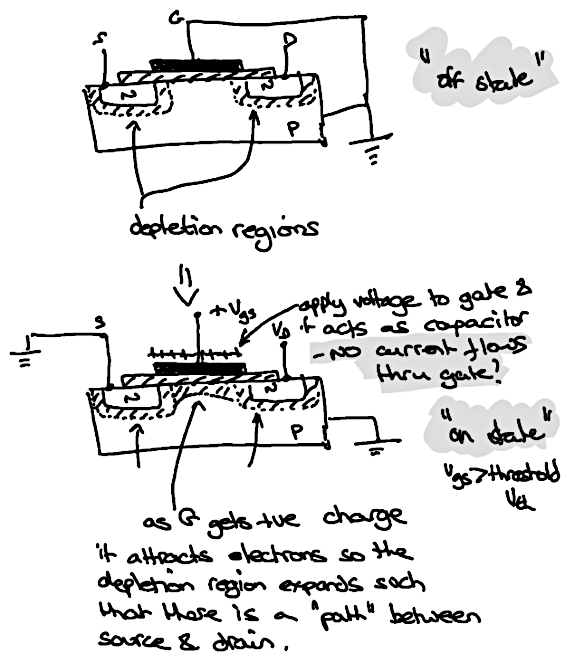 G
S
D
"off state"
N
N
P
depletion regions
+Vgs
apply voltage to gate &
it acts as capacitor
- NO current flows
thru gate?
S
VD
N
N
P
"on state"
Vgs > threshold
Vth
as G gets +ve charge
it attracts electrons so the
depletion region expands such
that there is a "path" between
source & drain.